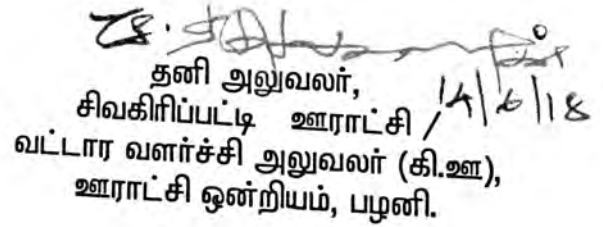 தனி அலுவலர்,
சிவகிரிப்பட்டி ஊராட்சி / 14/6/18
வட்டார வளர்ச்சி அலுவலர் (கி.ஊ),
ஊராட்சி ஒன்றியம், பழனி.